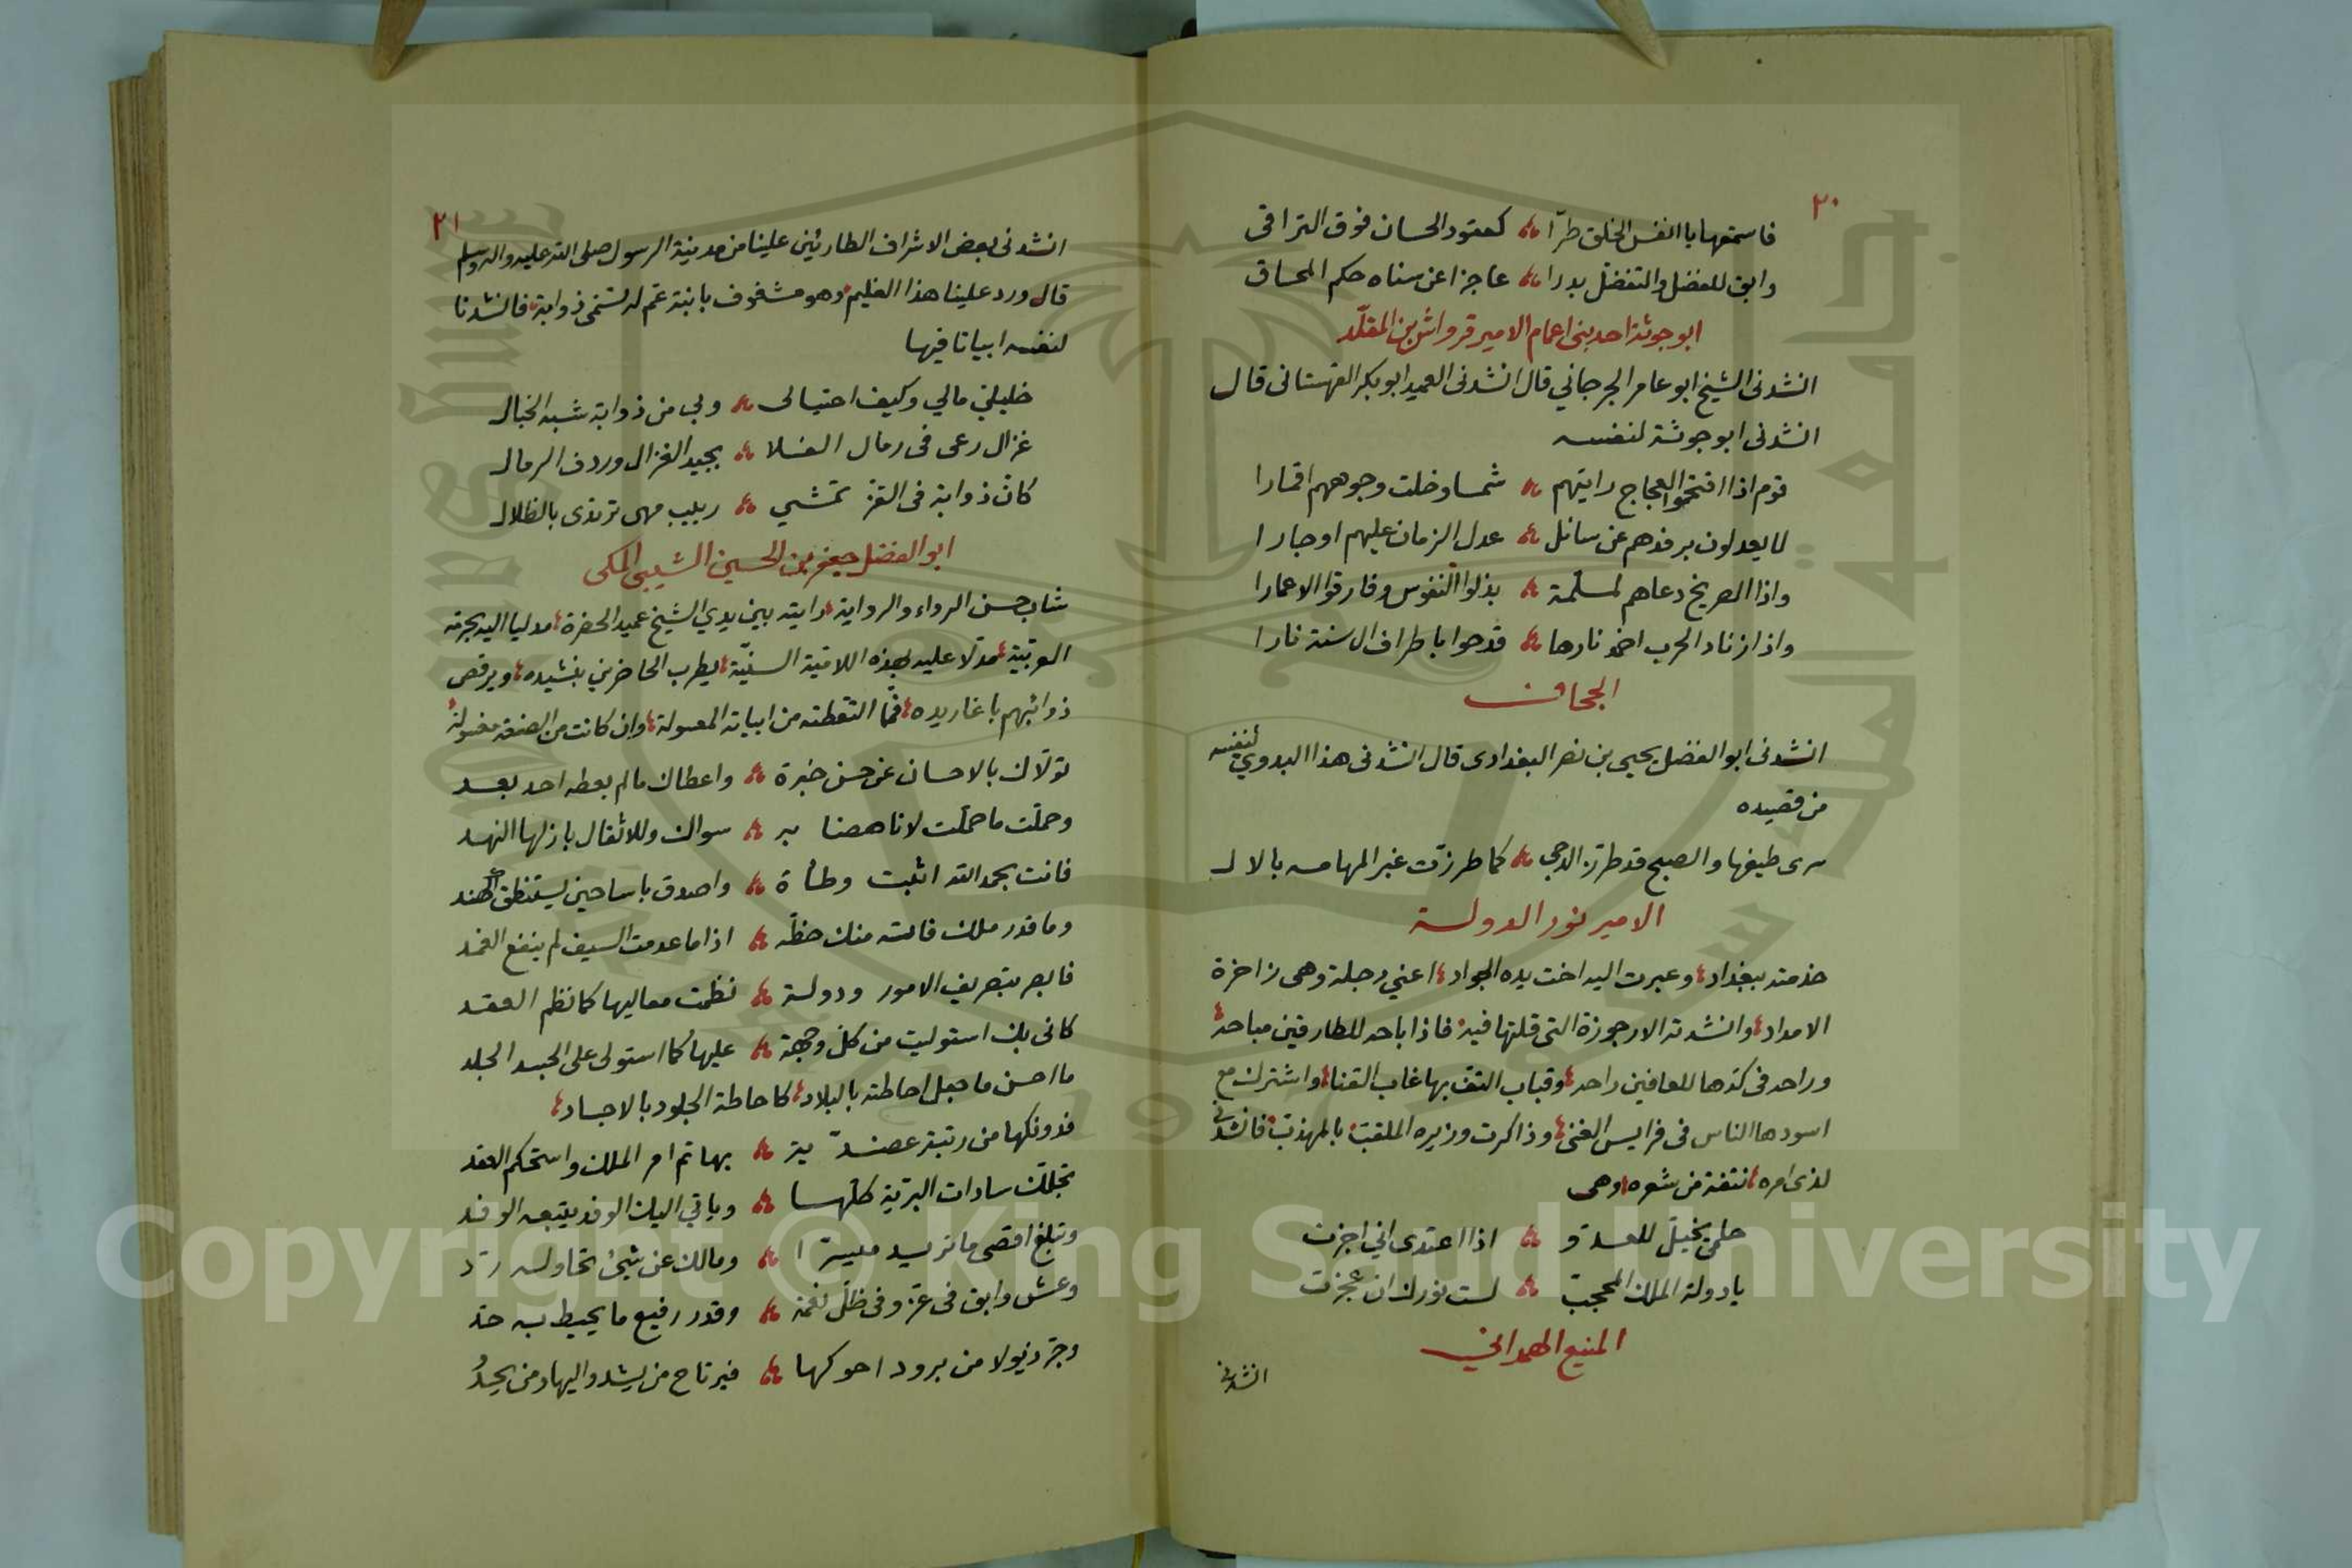 ٢٠
فاستمعها يا انفس الخلق طرّا ۞ كعقود الحسان فوق التراقى
وابق للفضل والتفضل بدرا ۞ عاجزا عن سناه حكم المحاق
ابو جوثة احد بنى اعمام الامير قرواش بن المقلّد
انشدنى الشيخ ابو عامر الجرجاني قال انشدنى العميد ابو بكر القهستانى قال
انشدنى ابو جوثة لنفسه
قوم اذا اقتحموا العجاج رايتهم ۞ شمسا وخلت وجوههم اقمارا
لا يعدلون برفدهم عن سائل ۞ عدل الزمان عليهم او جارا
واذا الصريخ دعاهم لملمّة ۞ بذلوا النفوس وفارقوا الاعمارا
واذا زناد الحرب اخمد نارها ۞ قدحوا باطراف الاسنة نارا
الجحاف
انشدنى ابو الفضل يحيى بن نصر البغدادى قال انشدنى هذا البدوي لنفسه
من قصيده
سرى طيفها والصبح قد طرّز الدجى ۞ كما طرزت غبر المهامه بالال
الامير نور الدولة
خدمته ببغداد، وعبرت اليه اخت يده الجواد، اعني دجلة وهى زاخرة
الامداد، وانشدته الارجوزة التى قلتها فيه، فاذا باحه للطارقين مباحة،
وراحه فى كدّها للعافين راحه، وقباب التف بها غاب القنا، واشترك مع
اسودها الناس فى فرايس الغنى، وذاكرت وزيره الملقب بالمهذب، فانشدنى
لذى امره، نتفة من شعره، وهى
حلمى يخيل للعدوّ ۞ اذا اعتدى اني اجزت
يا دولة الملك المحجب ۞ لست نورك ان عجزت
المنيع الهمداني
انشدنى
٢١
انشدنى بعض الاشراف الطارئين علينا من مدينة الرسول صلى الله عليه واله وسلم
قال ورد علينا هذا الغليم، وهو مشغوف بابنة عم له تسمى ذوابة، فانشدنا
لنفسه ابياتا فيها
خليليّ مالي وكيف احتيالى ۞ وبى من ذوابة شبه الخبال
غزال رعى فى رمال الفلا ۞ بجيد الغزال وردف الرمال
كانّ ذوابة فى القزّ تمشي ۞ ربيب مهى ترتدى بالظلال
ابو الفضل جعفر بن الحسين الشيبى المكى
شاب حسن الرواء والرواية، رايته بين يدي الشيخ عميد الحضرة، مدليا اليه بحرمة
العربيّة، مدلّا عليه بهذه اللاقية السنيّة، يطرب الحاضرين بنشيده، ويرقص
ذوائبهم باغاريده، فمّا التقطته من ابياته المعسولة، وان كانت من الصنعة مغسولة،
تولّاك بالاحسان عن حسن خبرة ۞ واعطاك مالم يعطه احد بعد
وحملت ما حملت لا ناهضا به ۞ سواك وللاثقال بازلها النهد
فانت بحمد الله اثبت وطأة ۞ واصدق باسا حين يستنطق الهند
وما قدر ملك فاته منك حظّه ۞ اذا ما عدمت السيف لم ينفع الغمد
فابصر بتصريف الامور ودولة ۞ نظمت معاليها كما نظم العقد
كانى بك استوليت من كل وجهة ۞ عليها كما استولى على الجسد الجلد
ما احسن ما جعل احاطته بالبلاد، كاحاطة الجلود بالاجساد،
فدونكها من رتبة عضديّة ۞ بها تم امر الملك واستحكم العقد
تجلّك سادات البريّة كلّها ۞ وياتي اليك الوفد يتبعه الوفد
وتبلغ اقصى ما تريد ميسرّا ۞ ومالك عن شئ تحاوله ردّ
وعش وابق فى عز وفى ظلّ نعمة ۞ وقدر رفيع ما يحيط به حدّ
وجرّ ذيولا من برود احوكها ۞ فيرتاح من يشدو اليها ومن يحدُ